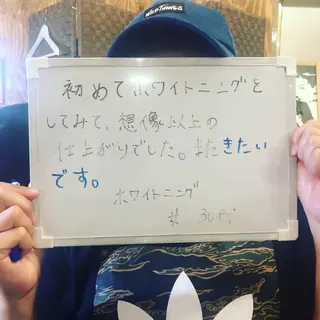 WILD THINGS
初めてホワイトニングを
してみて、想像以上の
仕上がりでした。またきたい
です。
ホワイトニング
30代